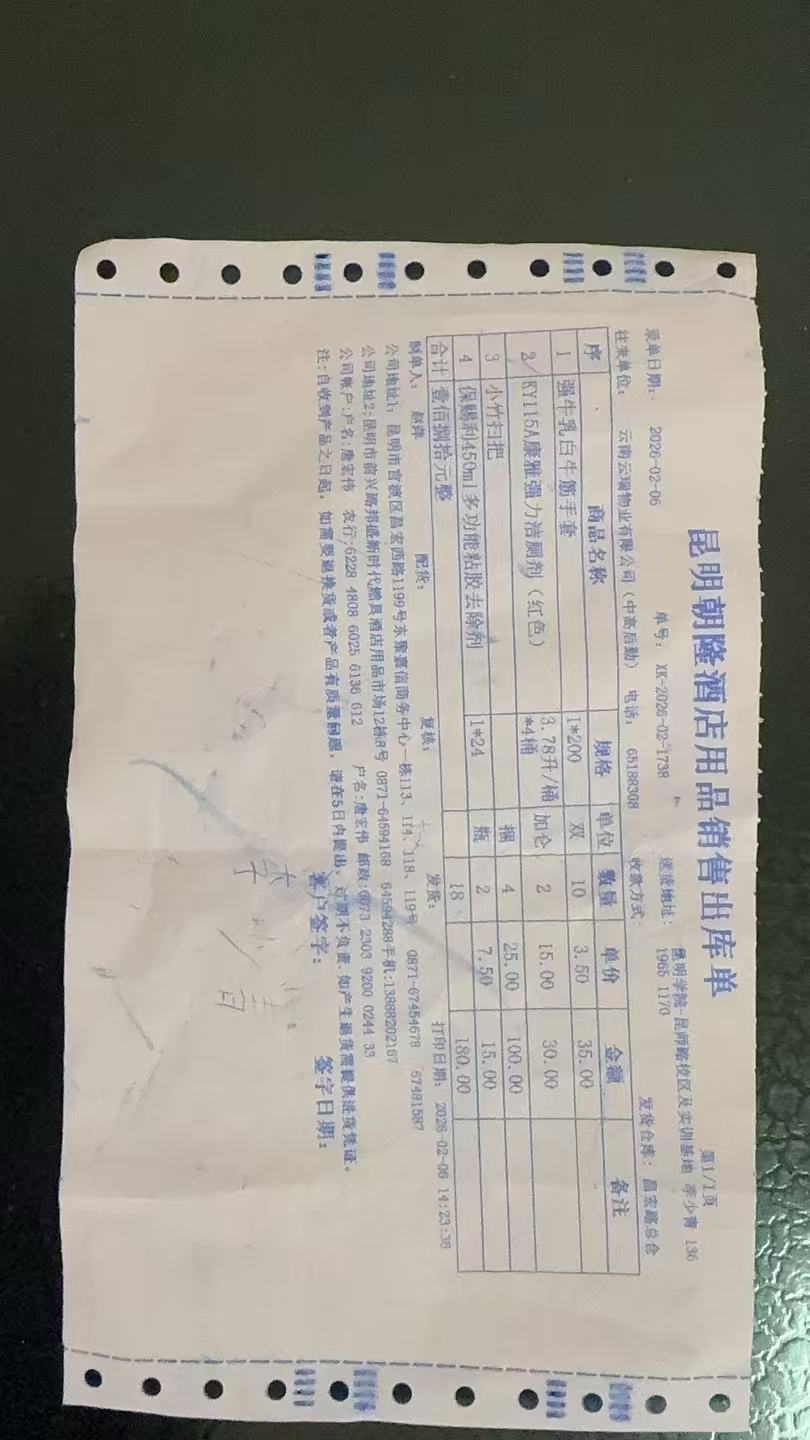 昆明朝隆酒店用品销售出库单
第1/1页
录单日期: 2026-02-06 单号: XK-2026-02-1738 送货地址: 昆明学院-昆师路校区及实训基地 李少青 136
1965 1170
往来单位: 云南云瑞物业有限公司（中高后勤） 电话: 65188308 收款方式: 发货仓库: 昌宏路总仓
序 商品名称 规格 单位 数量 单价 金额 备注
1 强牛乳白牛筋手套 1*200 双 10 3.50 35.00
2 KY115A康雅强力洁厕剂（红色） 3.78升/桶*4桶 加仑 2 15.00 30.00
3 小竹扫把 捆 4 25.00 100.00
4 保赐利450ml多功能粘胶去除剂 1*24 瓶 2 7.50 15.00
合计 壹佰捌拾元整 18 180.00
制单人: 赵萍 配货: 复核: 发货: 打印日期: 2026-02-06 14:23:36
公司地址1: 昆明市官渡区昌宏西路1199号东聚嘉信商务中心一栋113、114、118、119号 0871-67454678 67481587
公司地址2:昆明市前兴路邦盛新时代燃具酒店用品市场12栋8号 0871-64594168 64594288手机:13888202167
公司帐户:户名:唐宏伟 农行:6228 4808 6025 6136 612 户名:唐宏伟 邮政:6073 2303 9200 0244 33
注:自收到产品之日起, 如需要退换货或者产品有质量问题, 请在5日内提出, 过期不负责.如产生退货需提供进货凭证。
客户签字: 签字日期:
李少青